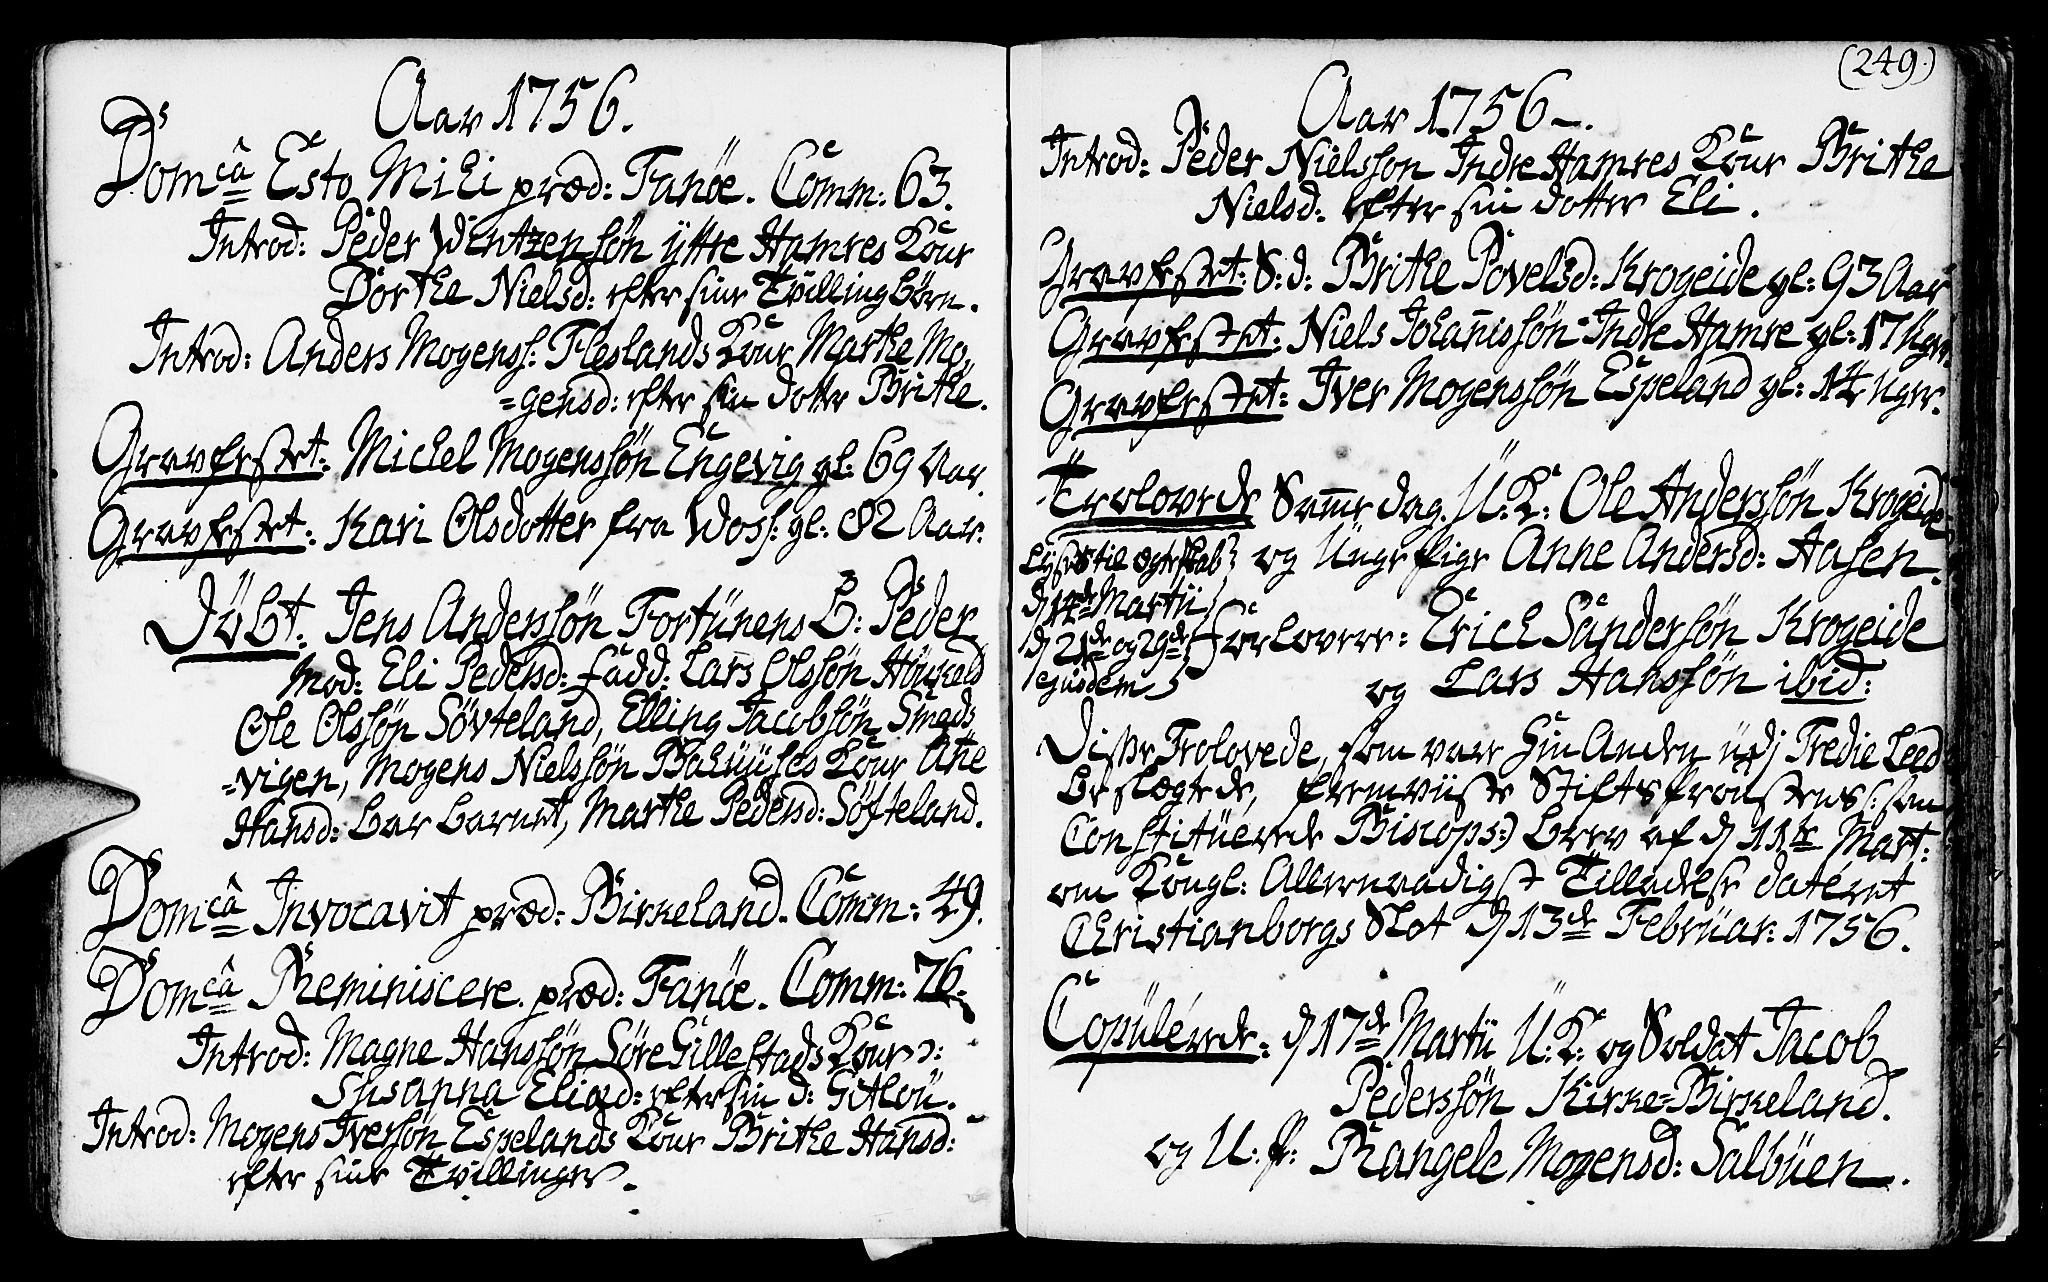 Aar 1756.
Domcâ Esto Mihi præd: Fanöe. Comm: 63.
Introd: Peder Wintzensön ÿttre Hamres Kone
Dorthe Nielsd: efter sine Tvilling börn.
Introd: Anders Mogenss: Fleslands Kone Marthe Mo,
=gensd: efter sin dotter Brithe.
Gravfestet: Michel Mogenssön Engevig gl: 69 Aar.
Gravfestet: Kari Olsdotter fra Woss: gl: 82 Aar.
Döbt. Jens Anderssön Fortünens B: Peder
Mod: Eli Pedersd: fadd: Lars Olssön
Ole Olssön Sövteland, Elling Jacobsön Smeds
=vigen, Mogens Nielssön Kone Ane
Hansd: bar barnet, Marthe Pedersd: Söfteland.
Domcâ Invocavit præd: Birkeland. Comm: 49.
Domcâ Reminiscere præd: Fanöe. Comm: 76.
Introd: Magne Hanssön Söre Gillestads Kone
Susanna Eliæd: efter sin d: Gitlou.
Introd: Mogens Iversön Espelands Kone Brithe Hansd:
efter sine Tvillinger.
(249.)
Aar 1756.
Introd: Peder Nielsson Indre Hamres Kone Brithe
Nielsd: efter sin dotter Eli.
Gravfestet: S: d: Brithe Povelsd: Krogeide gl: 93 Aar
Gravfestet: Niels Johan̄issön Indre Hamre gl: 17 Uger.
Gravfestet: Iver Mogenssön Espeland gl: 14 Uger.
Trolovede Sam̄e dag. U: K: Ole Anderssön Krogeide
og Unge Pige Anne Andersd: Aasen.
Lyset til Ægteskab
d 14de Martii
d 21de og 29de
ejusdem
Forlovere: Erich Sandersön Krogeide
og Lars Hanssön ibid:
Disse Trolovede, som vare hin Anden udj Tredie Leed
Beslægtede, fremviiste Stiftsprovstens (: som
Constituerede Biscops:) brev af d 11te Mart:
om Kongl: Allernaadigst Tilladelse dateret
Christianborgs Slot d 13de Februar: 1756.
Copulerede: d 17de Martii U: K: og Soldat Jacob
Pederssön Kirke=Birkeland.
og U: P: Rangele Mogensd: Salbuen.